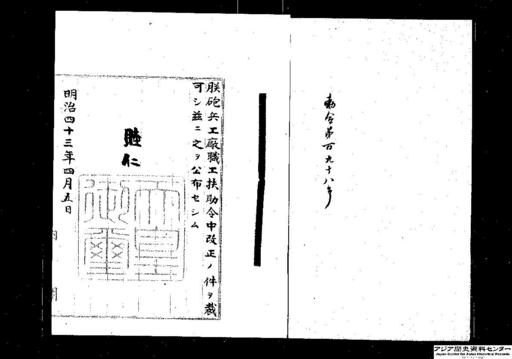 勅令第百九十八号
朕砲兵工廠職工扶助令中改正ノ件ヲ裁
可シ茲ニ之ヲ公布セシム
睦仁
天皇御璽
明治四十三年四月五日
内閣
アジア歴史資料センター
Japan Center for Asian Historical Records